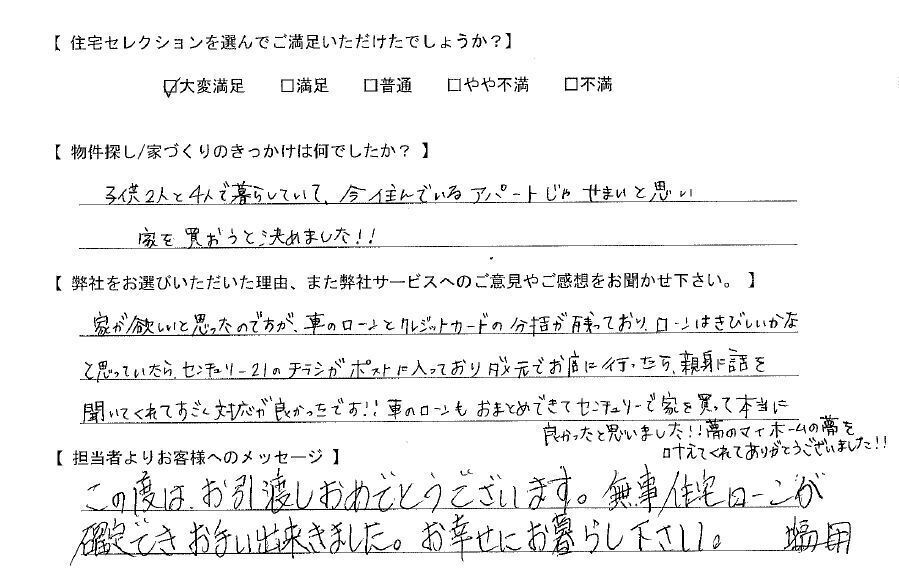 【 住宅セレクションを選んでご満足いただけたでしょうか?】
☑大変満足 □満足 □普通 □やや不満 □不満
【 物件探し/家づくりのきっかけは何でしたか? 】
子供2人と4人で暮らしていて、今住んでいるアパートじゃせまいと思い
家を買おうと決めました!!
【 弊社をお選びいただいた理由、また弊社サービスへのご意見やご感想をお聞かせ下さい。 】
家が欲しいと思ったのですが、車のローンとクレジットカードの分括が残っており、ローンはきびしいかな
と思っていたら、センチュリー21のチラシがポストに入っておりダメ元でお店に行ったら、親身に話を
聞いてくれてすごく対応が良かったです!! 車のローンもおまとめできてセンチュリーで家を買って本当に
良かったと思いました!!夢のマイホームの夢を
叶えてくれてありがとうございました!!
【 担当者よりお客様へのメッセージ 】
この度は、お引渡しおめでとうございます。無事住宅ローンが
確定でき お手い出来きました。お幸せにお暮らし下さい。